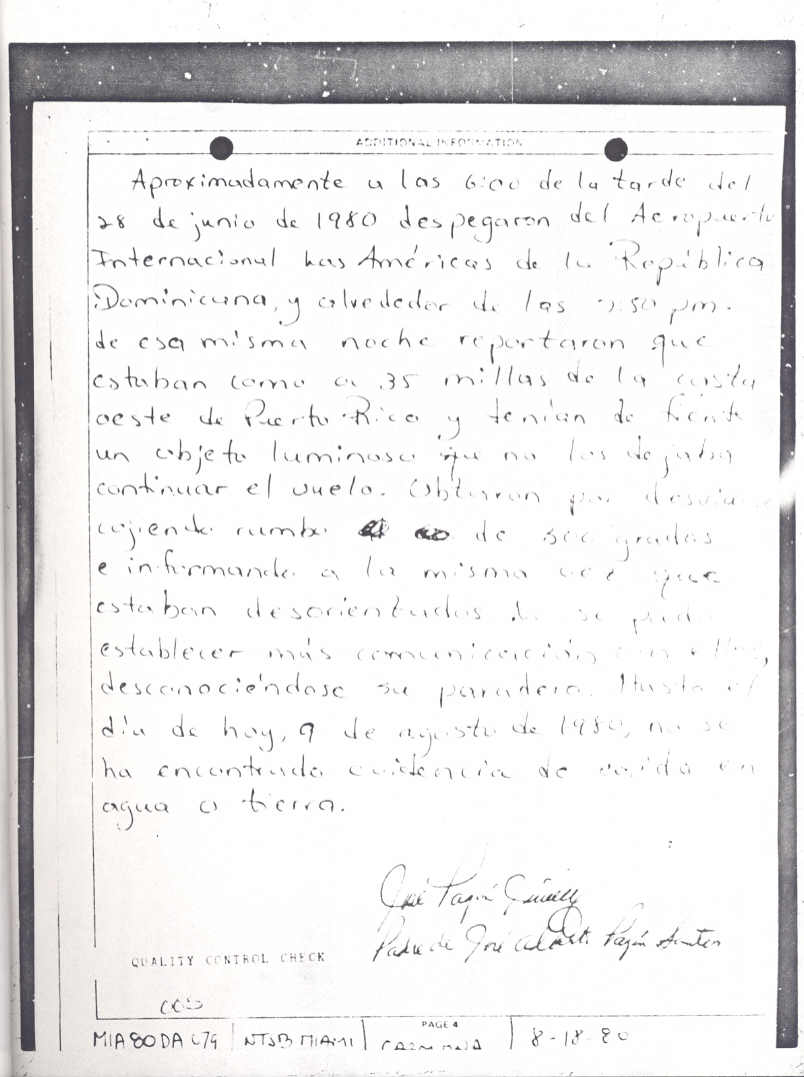 ADDITIONAL INFORMATION
Aproximadamente a las 6:00 de la tarde del
28 de junio de 1980 despegaron del Aeropuerto
Internacional Las Américas de la República
Dominicana, y alrededor de las :50 pm.
de esa misma noche reportaron que
estaban como a 35 millas de la costa
oeste de Puerto Rico y tenían de frente
un objeto luminoso que no los dejaba
continuar el vuelo. por
cojiendo rumbo de 300 grados
e informando a la misma vez que
estaban desorientados. se pudo
establecer más comunicación con ellos,
desconociéndose su paradero. Hasta el
día de hoy, 9 de agosto de 1980, no se
ha encontrado evidencia de caída en
agua o tierra.
José Pagán
Padre de José Pagán Santos
QUALITY CONTROL CHECK
PAGE 4
MIA80DA NTSB MIAMI CARMONA 8-18-80